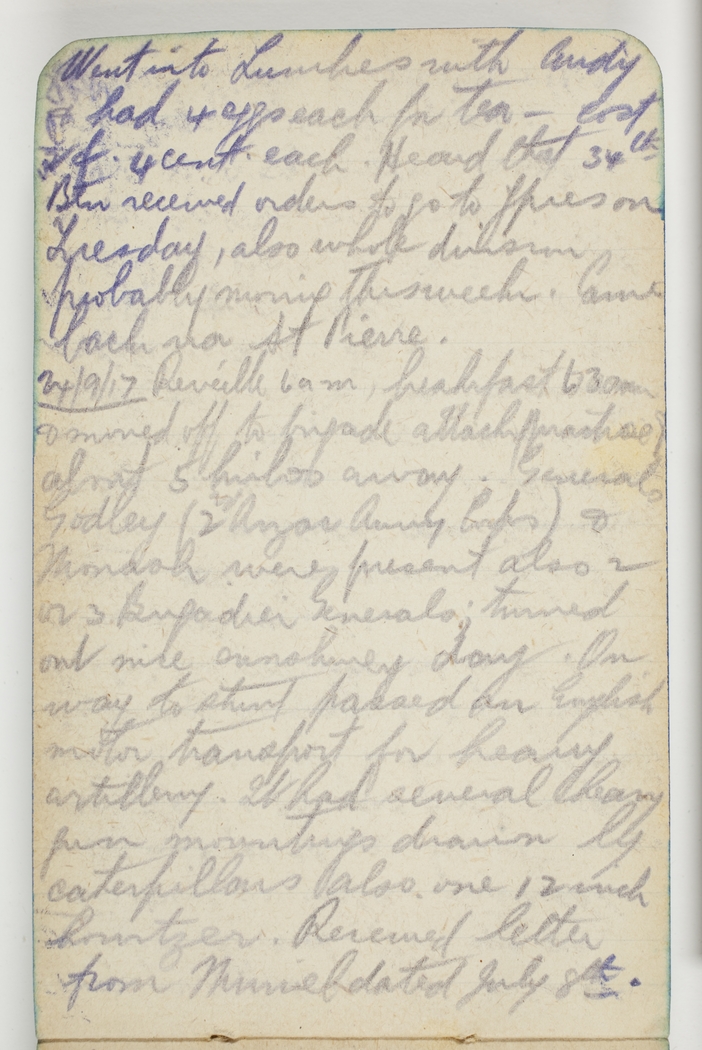 Went into Lumbres with Andy
& had 4 eggs each for tea – cost
2 f. 4 cent. each. Heard that 34th
Btn received orders to go to Ypres on
Tuesday, also whole division
probably moving this week. Came
back via St Pierre.
24/9/17 Reveille 6am, breakfast 6 30am
& moved off to brigade attack (practice)
about 5 kilos away. Generals
Godley (2nd Anzac Army Corps) &
Monash were present also 2
or 3 Brigadier Generals; turned
out nice sunshiney day. On
way to stunt passed an English
motor transport for heavy
artillery. It had several heavy
gun mountings drawn by
caterpillars also one 12 inch
howitzer. Received letter
from Muriel dated July 8th.